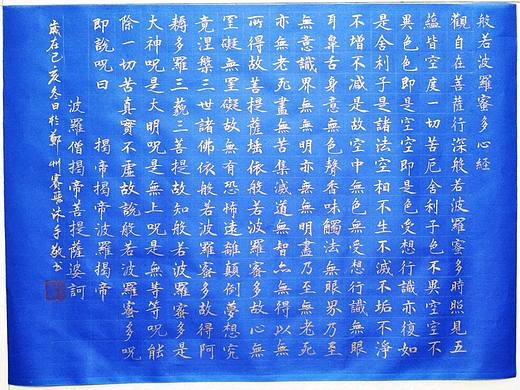 般若波羅蜜多心經
觀自在菩薩行深般若波羅蜜多時照見五
蘊皆空度一切苦厄舍利子色不異空空不
異色色即是空空即是色受想行識亦復如
是舍利子是諸法空相不生不滅不垢不淨
不增不減是故空中無色無受想行識無眼
耳鼻舌身意無色聲香味觸法無眼界乃至
無意識界無無明亦無無明盡乃至無老死
亦無老死盡無苦集滅道無智亦無得以無
所得故菩提薩埵依般若波羅蜜多故心無
罣礙無罣礙故無有恐怖遠離顛倒夢想究
竟涅槃三世諸佛依般若波羅蜜多故得阿
耨多羅三藐三菩提故知般若波羅蜜多是
大神呪是大明呪是無上呪是無等等呪能
除一切苦真實不虛故說般若波羅蜜多呪
即說呪曰 揭帝揭帝波羅揭帝
波羅僧揭帝菩提薩婆訶
歲在己亥冬日於鄭州沐手敬書